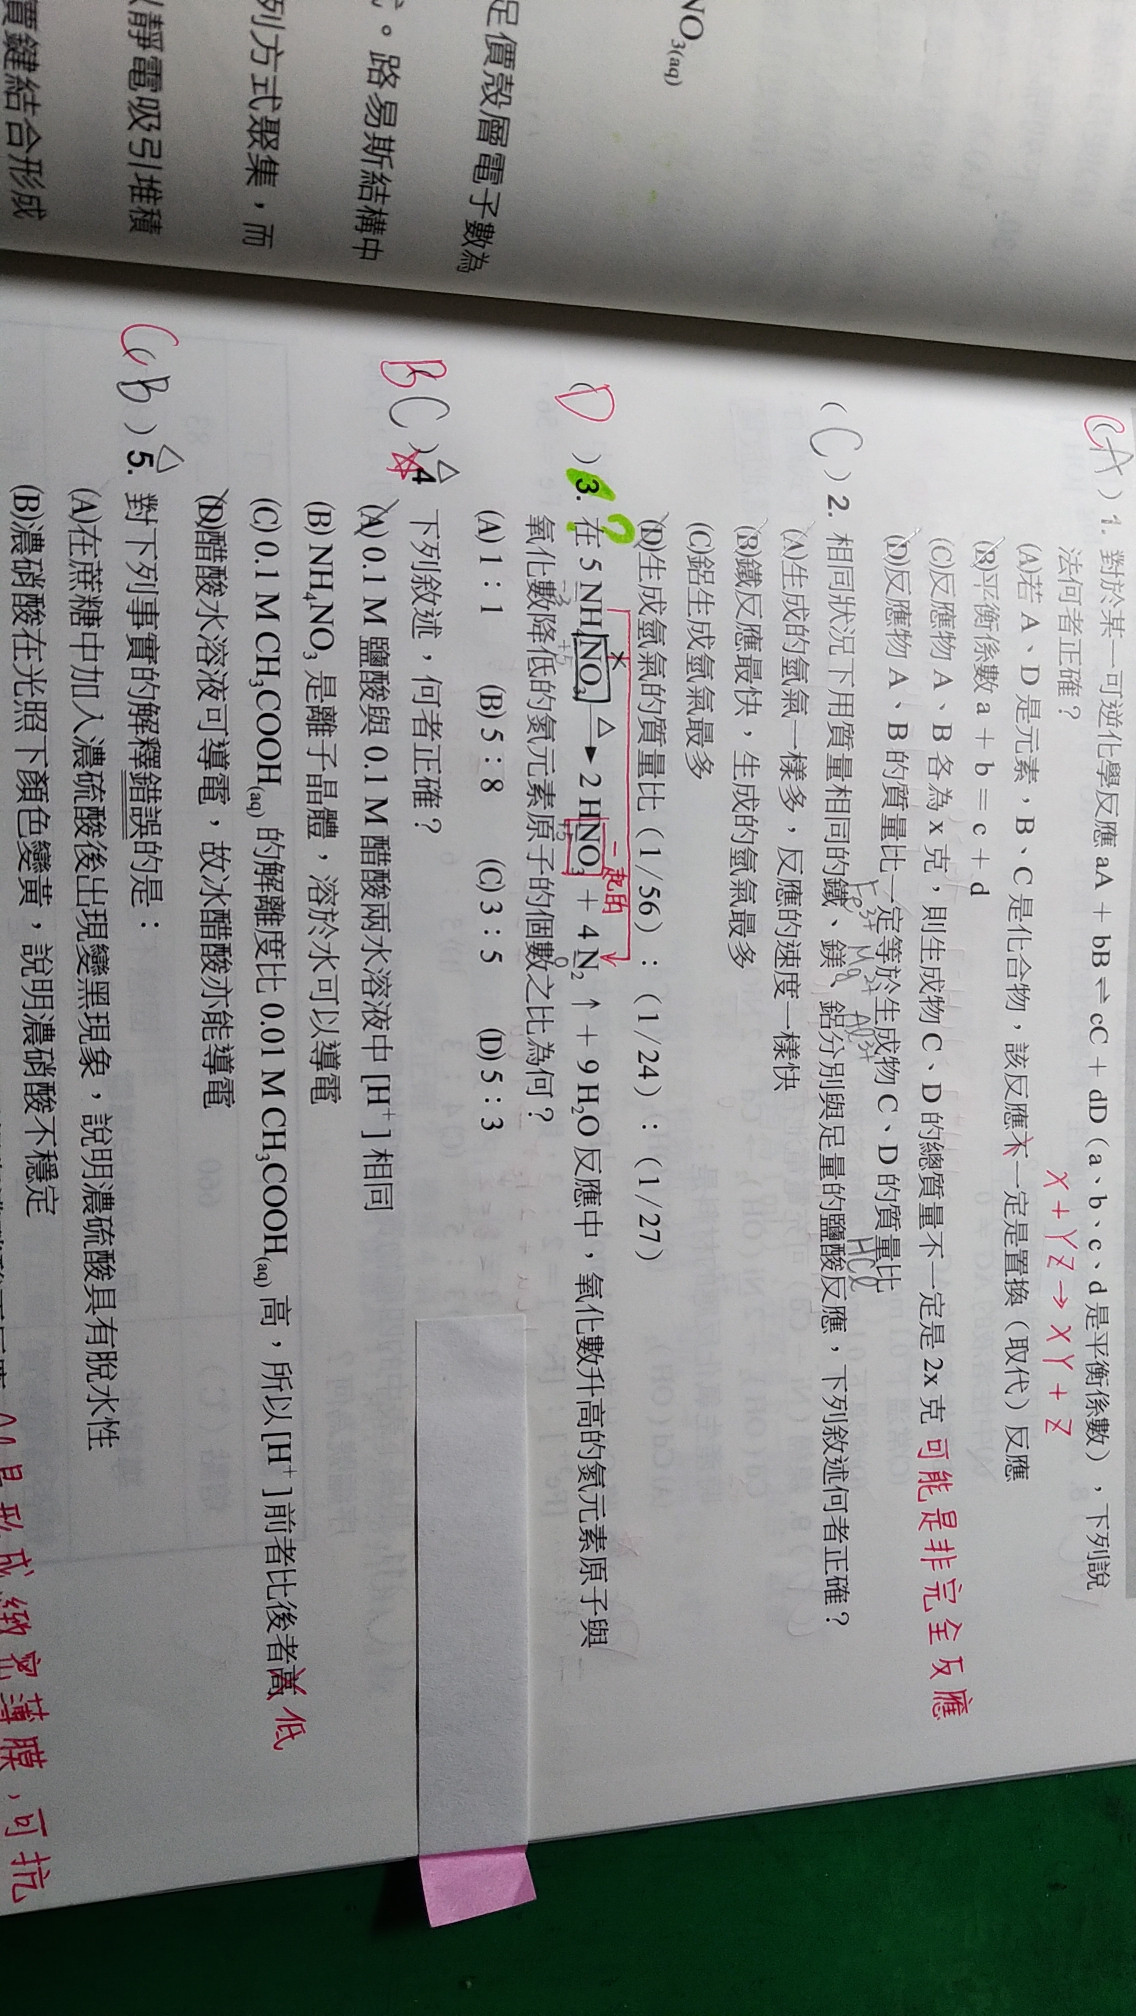 NO3(aq)
足價殼層電子數為
。路易斯結構中
列方式聚集，而
靜電吸引堆積
價鍵結合形成
(CA) 1. 對於某一可逆化學反應 aA + bB ⇌ cC + dD（a、b、c、d 是平衡係數），下列說
法何者正確？
X + YZ → XY + Z
(A)若 A、D 是元素，B、C 是化合物，該反應不一定是置換（取代）反應
(B)平衡係數 a + b = c + d
(C)反應物 A、B 各為 x 克，則生成物 C、D 的總質量不一定是 2x 克 可能是非完全反應
(D)反應物 A、B 的質量比一定等於生成物 C、D 的質量比
Fe3+ Mg2+ Al3+ HCl
(C) 2. 相同狀況下用質量相同的鐵、鎂、鋁分別與足量的鹽酸反應，下列敘述何者正確？
(A)生成的氫氣一樣多，反應的速度一樣快
(B)鐵反應最快，生成的氫氣最多
(C)鋁生成氫氣最多
(D)生成氫氣的質量比（1/56）：（1/24）：（1/27）
? 一起的
(D) 3. 在 5 NH4NO3 △→ 2 HNO3 + 4 N2 ↑ + 9 H2O 反應中，氧化數升高的氮元素原子與
-3 +5 +5 0
氧化數降低的氮元素原子的個數之比為何？
(A) 1：1 (B) 5：8 (C) 3：5 (D) 5：3
(BC) △4 下列敘述，何者正確？
(A) 0.1 M 鹽酸與 0.1 M 醋酸兩水溶液中 [H+] 相同
(B) NH4NO3 是離子晶體，溶於水可以導電
(C) 0.1 M CH3COOH(aq) 的解離度比 0.01 M CH3COOH(aq) 高，所以 [H+] 前者比後者高 低
(D)醋酸水溶液可導電，故冰醋酸亦能導電
C(B) △5. 對下列事實的解釋錯誤的是：
(A)在蔗糖中加入濃硫酸後出現變黑現象，說明濃硫酸具有脫水性
(B)濃硝酸在光照下顏色變黃，說明濃硝酸不穩定
是形成緻密薄膜，可抗